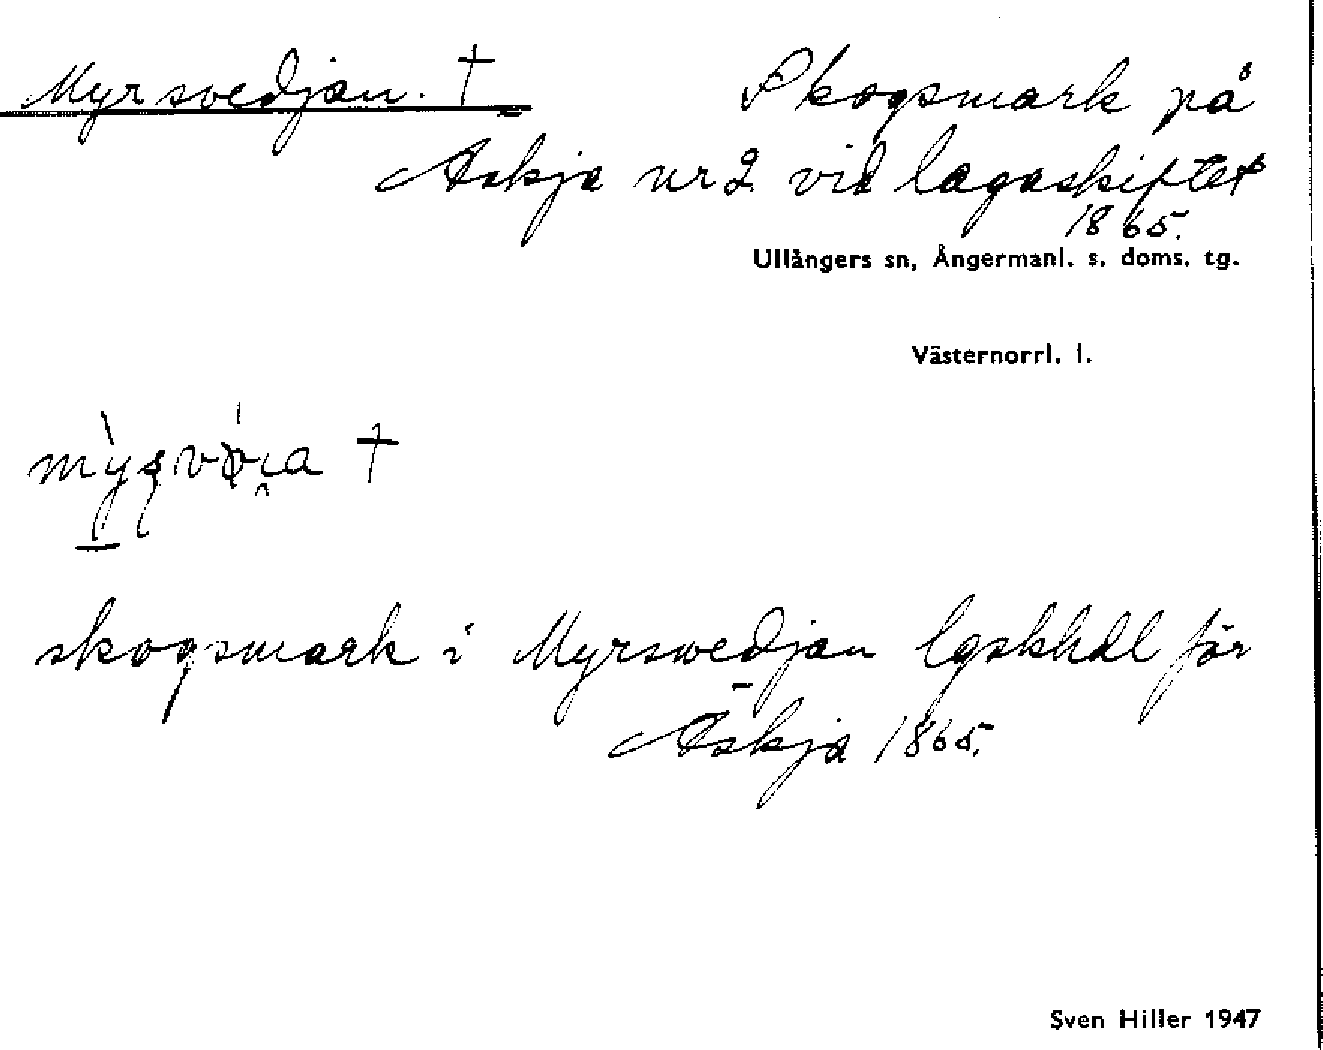 Myrsvedjan. † Skogsmark på
Askja nr 2 vid lagaskiftet
1865.
Ullångers sn, Ångermanl. s. doms. tg.
Västernorrl. l.
†
skogsmark i Myrswedjan lgskhdl för
Askja 1865.
Sven Hiller 1947